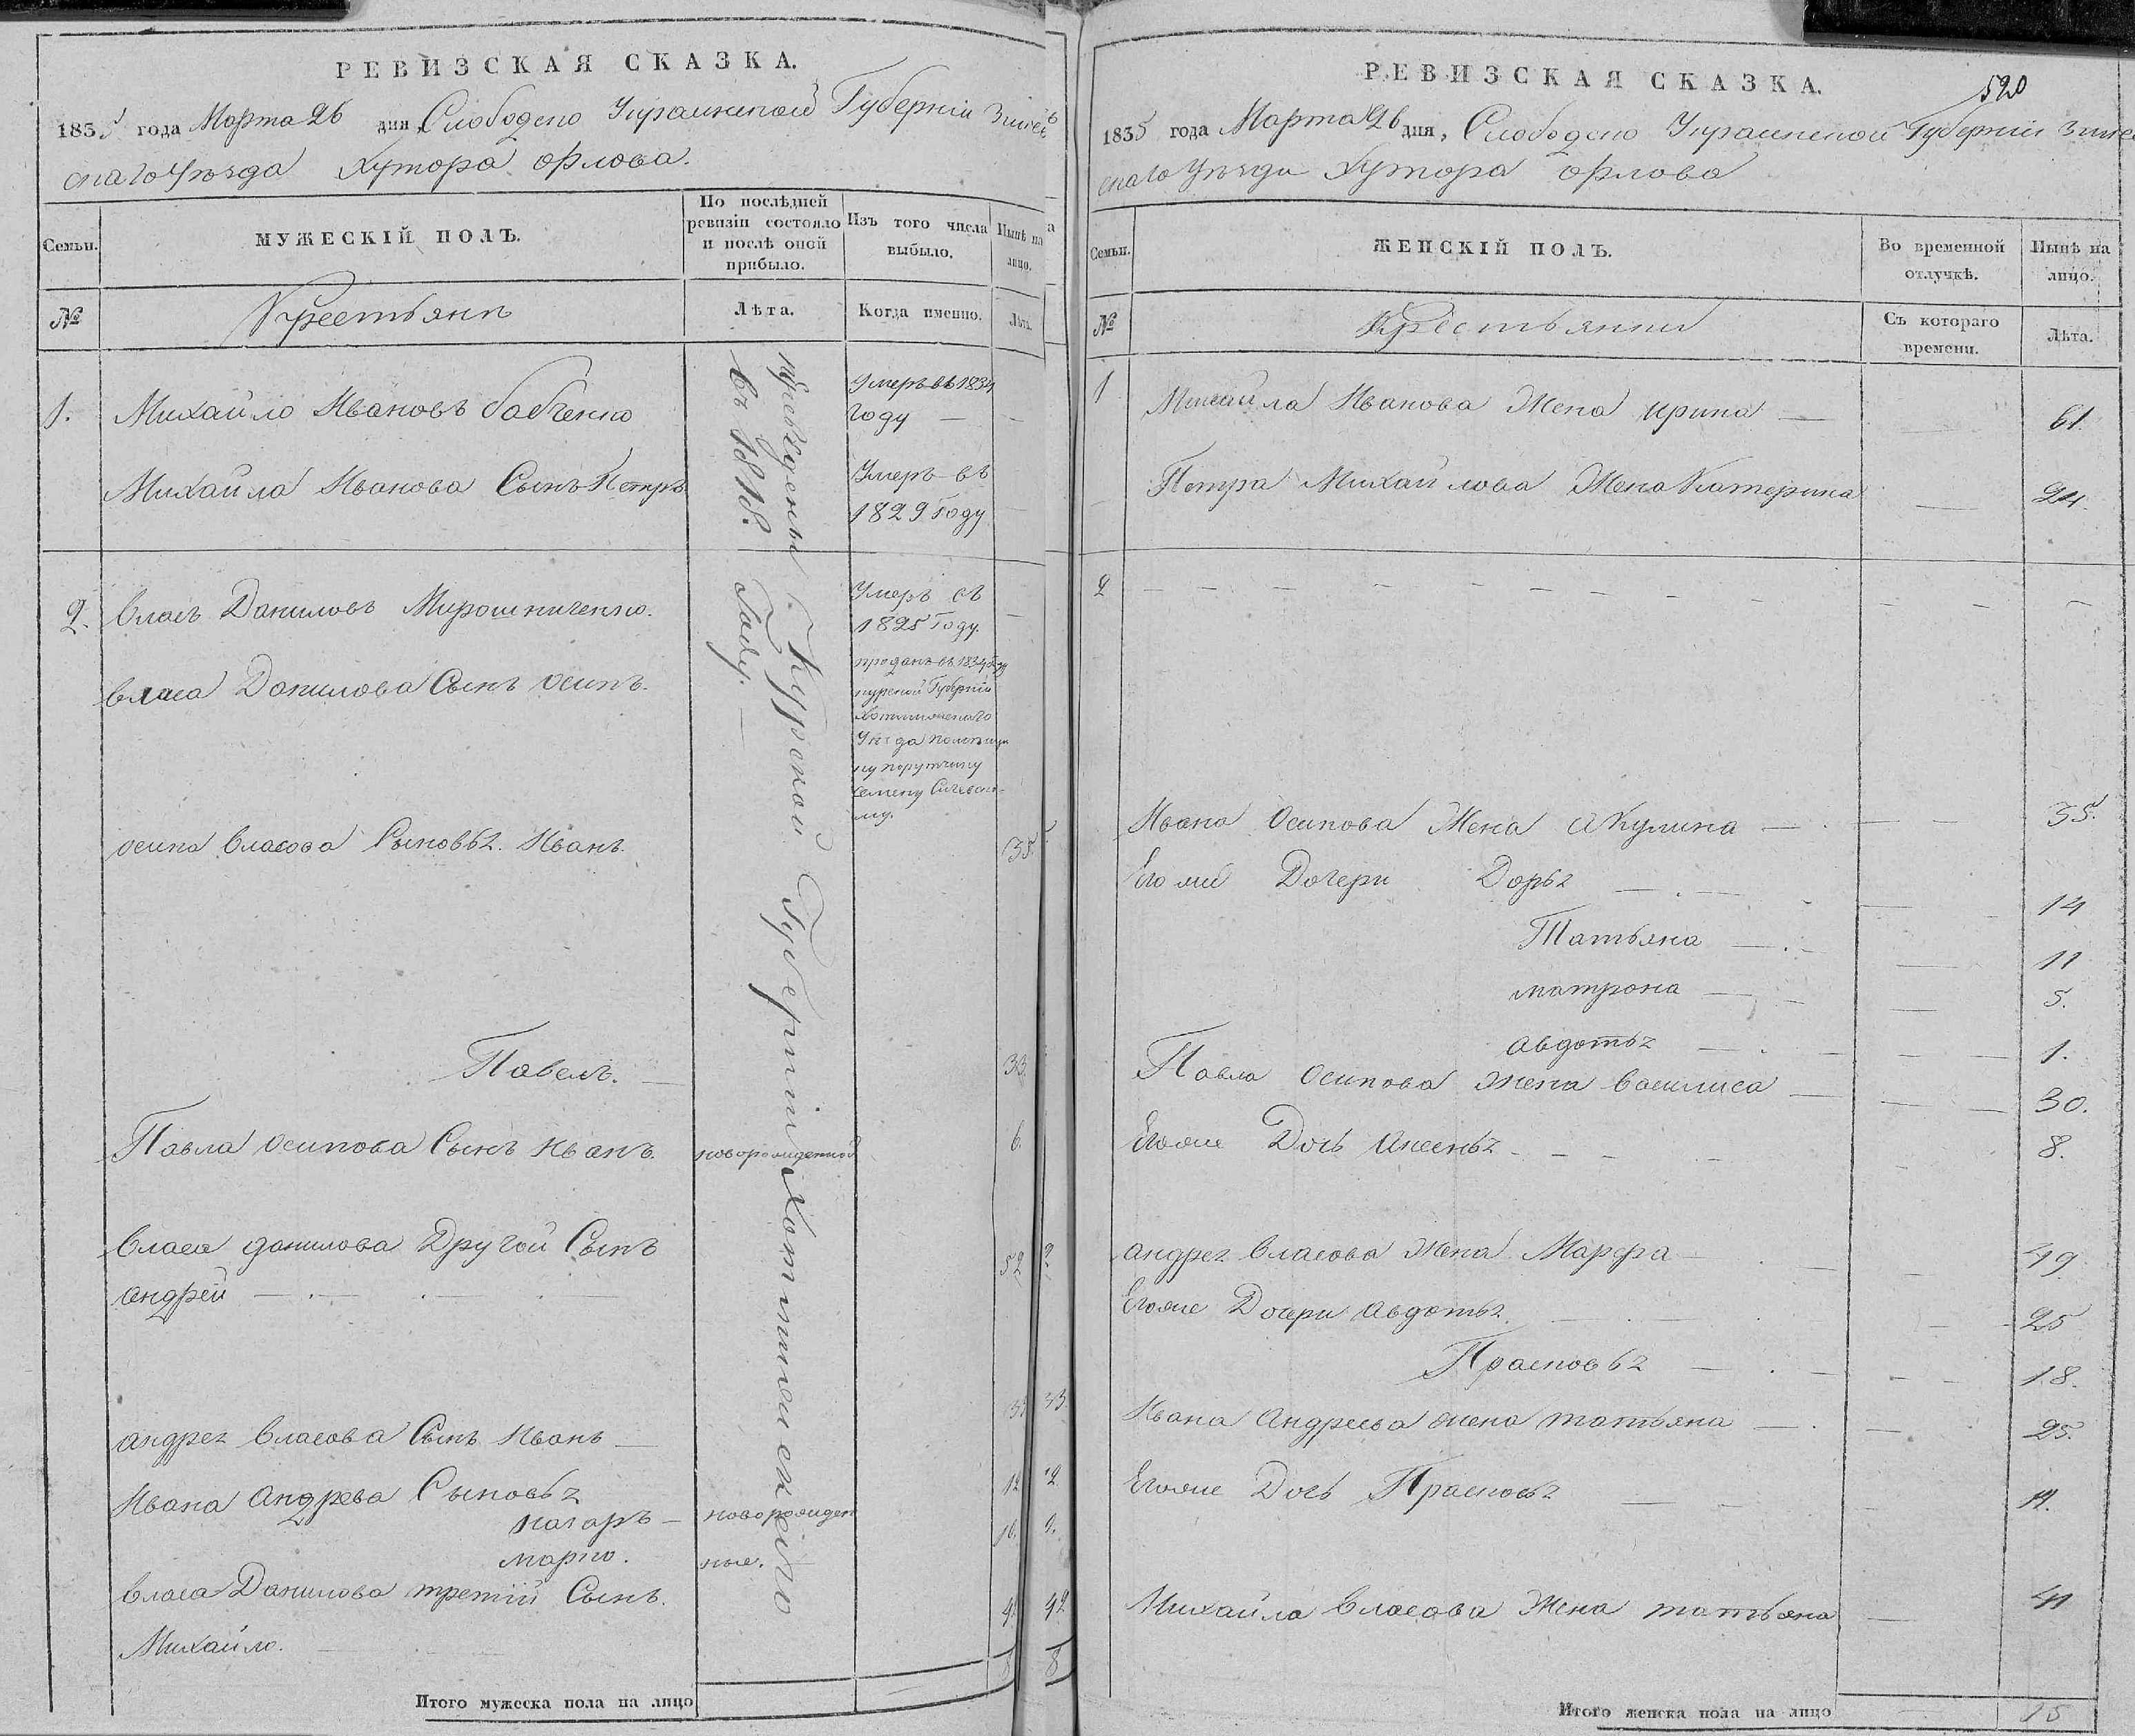 РЕВИЗСКАЯ СКАЗКА.
1835 года Марта 26 дня, Слободско Украинской Губерніи Зміев
скаго Уѣзда Хутора Орлова.
Семьи.
МУЖЕСКІЙ ПОЛЪ.
По послѣдней
ревизіи состояло
и послѣ оной
прибыло.
Изъ того числа
выбыло.
Нынѣ на
лицо.
№
Крестьянъ
Лѣта.
Когда именно.
Лѣта.
переведены Курской Губерніи Хотмижскаго
въ 1818. Году. —
1. Михайло Ивановъ бабченко
Умеръ въ 1834
году — —
Михайла Иванова Сынъ Петръ
Умеръ въ
1829 Году —
2. Власъ Даниловъ Мирошниченко.
Умеръ въ
1825 Году. —
Власа Данилова Сынъ осипъ.
проданъ въ 1834 году
курской Губерніи
Хотмижскаго
Уѣзда помѣщи
ку порутчику
Семену
му.
осипа Власова Сыновья. Иванъ. 35.
Павелъ. — 33.
Павла осипова Сынъ Иванъ. новорожденной 6
Власа данилова Другой Сынъ
андрей — 52
андрея Власова Сынъ Иванъ — 33
Ивана Андрева Сыновья
назаръ — новорожден 12
марко. ные. 10.
Власа Данилова третій Сынъ.
Михайло. — 42
Итого мужеска пола на лицо 8
РЕВИЗСКАЯ СКАЗКА.
520
1835 года Марта 26 дня, Слободско Украинской Губерніи Зміев
скаго Уѣзда Хутора Орлова
Семьи.
ЖЕНСКІЙ ПОЛЪ.
Во временной
отлучкѣ.
Нынѣ на
лицо.
№
Крестьянки
Съ котораго
времени.
Лѣта.
1 Михайла Иванова Жена ирина — — 61.
Петра Михайлова Жена Катерина — 24.
2 — — — — — — — —
Ивана Осипова Жена Акулина — — 35.
Его же Дочери Дорья — — 14
Татьяна — — 11
матрона — — 5.
авдотья — — 1.
Павла Осипова жена василиса — — 30.
Егоже Дочь Аксенья — — 8.
андрея Власова жена Марфа — — 49
Егоже Дочери авдотья. — — 25
Прасковья — — 18.
Ивана Андреева жена татьяна — — 25.
Егоже Дочь Прасковья — —
Михайла Власова Жена татьяна — 41
Итого женска пола на лицо 15